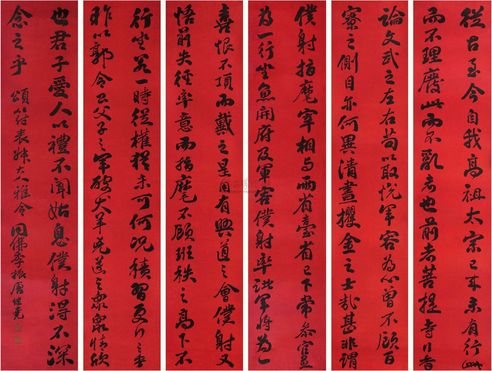 從古至今自我高祖太宗已來未有行此
而不理廢此而不亂者也前者菩提寺行香
僕射指麾宰相與兩省臺省已下常參官
為一行坐魚開府及軍容僕射率諸軍將為一
行坐若一時從權猶未可何況積習更行之乎
昨以郭令公父子之軍破犬羊兇逆之眾眾情欣
喜恨不頂而戴之是用有興道之會僕射又
悟前失徑率意而指麾不顧班秩之高下不
論文武之左右苟以取悅軍容為心曾不顧百
寮之側目亦何異清晝攫金之士哉甚非謂
也君子愛人以禮不聞姑息僕射得不深
念之乎